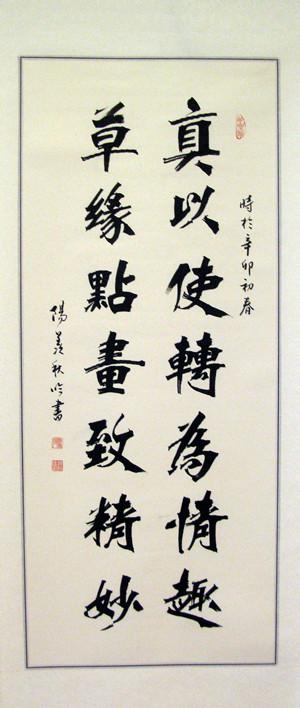 真以使轉為情趣
草緣點畫致精妙
時於辛卯初春
陽羨秋吟書